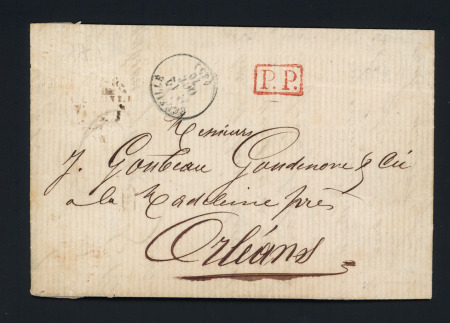 P.P.
Messieurs
J. Goubeau Goudenove & Cie
a la Madeleine près
Orléans